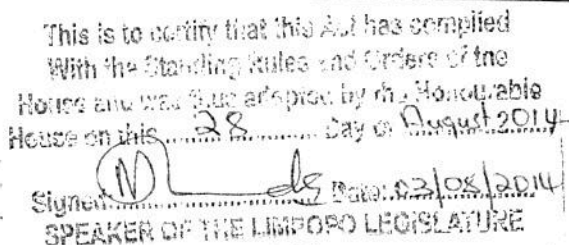 This is to certify that this Act has complied
With the Standing Rules and Orders of the
House and was thus adopted by the Honourable
House on this 28 Day of August 2014
Signed: Date: 03/08/2014
SPEAKER OF THE LIMPOPO LEGISLATURE